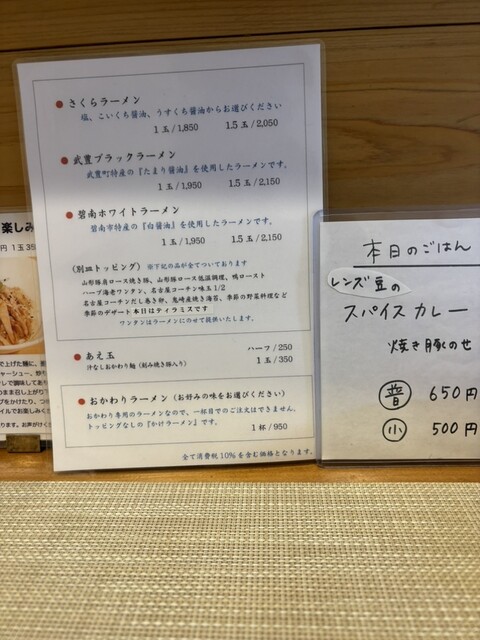 ● さくらラーメン
塩、こいくち醤油、うすくち醤油からお選びください
1 玉 / 1,850 1.5 玉 / 2,050
● 武豊ブラックラーメン
武豊町特産の『たまり醤油』を使用したラーメンです。
1 玉 / 1,950 1.5 玉 / 2,150
● 碧南ホワイトラーメン
碧南市特産の『白醤油』を使用したラーメンです。
1 玉 / 1,950 1.5 玉 / 2,150
(別皿トッピング) ※下記の品が全てついております
山形豚肩ロース焼き豚、山形豚ロース低温調理、鴨ロースト
ハーブ海老ワンタン、名古屋コーチン味玉 1/2
名古屋コーチンだし巻き卵、鬼崎産焼き海苔、季節の野菜料理など
季節のデザート 本日はティラミスです
ワンタンはラーメンにのせて提供いたします。
● あえ玉 ハーフ / 250
汁なしおかわり麺 (刻み焼き豚入り) 1 玉 / 350
● おかわりラーメン (お好みの味をお選びください)
おかわり専用のラーメンなので、一杯目でのご注文はできません。
トッピングなしの『かけラーメン』です。
1 杯 / 950
全て消費税10%を含む価格となります。
本日のごはん
レンズ豆の
スパイスカレー
焼き豚のせ
普 650円
小 500円
楽しみ
円 1玉35
で上げた麺に、
チャーシュー、
して調味してあり
のまま召し上がり
プをかけたり、
イルでお楽しみく
ります。お声がけく